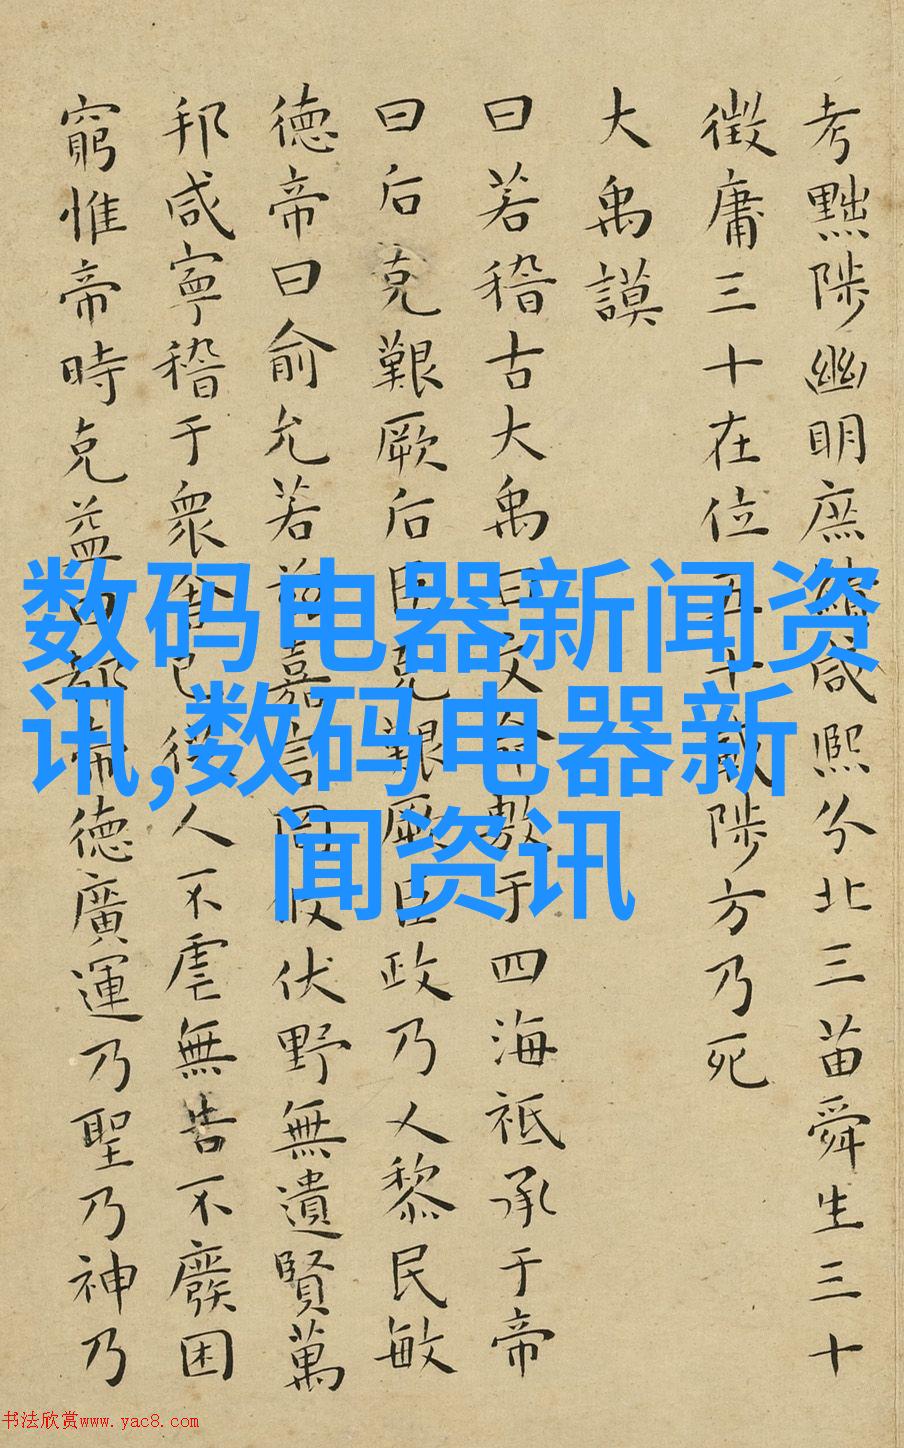 考黜陟幽明庶績咸熙分北三苗舜生三十
徵庸三十在位五十載陟方乃死
大禹謨
曰若稽古大禹曰文命敷于四海祗承于帝
曰后克艱厥后臣克艱厥臣政乃乂黎民敏
德帝曰俞允若茲嘉言罔攸伏野無遺賢萬
邦咸寧稽于衆舍己從人不虐無告不廢困
窮惟帝時克益曰都帝德廣運乃聖乃神乃
数码电器新闻资
讯,数码电器新
闻资讯
书法欣赏www.yac8.com